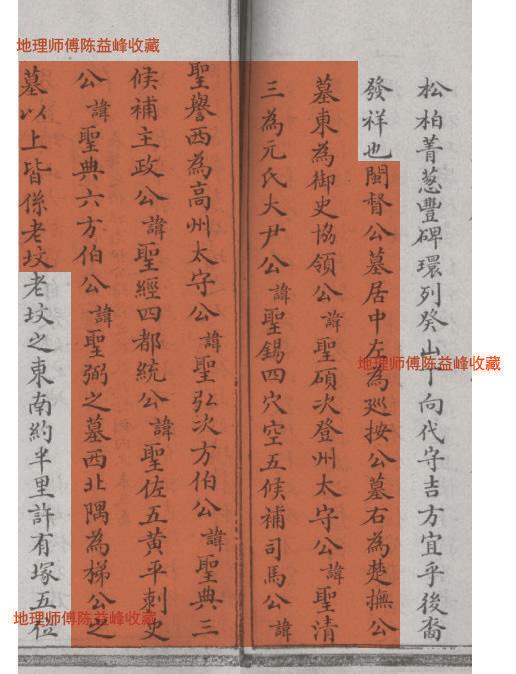 地理师傅陈益峰收藏
松柏菁葱豐碑環列癸山丁向代守吉方宜乎後裔
發祥也閩督公墓居中左為廵按公墓右為楚撫公
墓東為御史協領公諱聖碩次登州太守公諱聖清
三為元氏大尹公諱聖錫四穴空五候補司馬公諱
聖譽西為高州太守公諱聖弘次方伯公諱聖典三
候補主政公諱聖經四都統公諱聖佐五黃平刺史
公諱聖典六方伯公諱聖弼之墓西北隅為梯公之
墓以上皆係老坟老坟之東南約半里許有塚五位
地理师傅陈益峰收藏
地理师傅陈益峰收藏